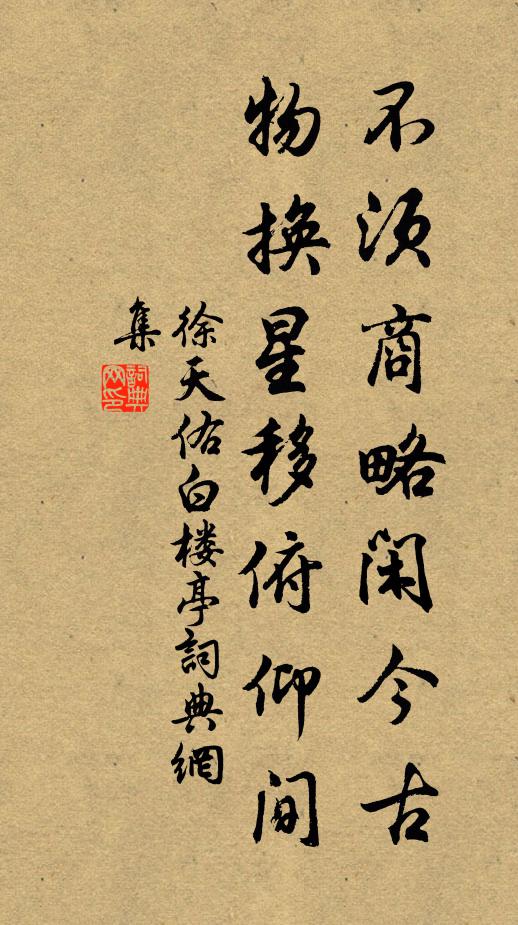 不须商略闲今古
物换星移俯仰间
徐天佑白楼亭詞典網
集
詞典網印